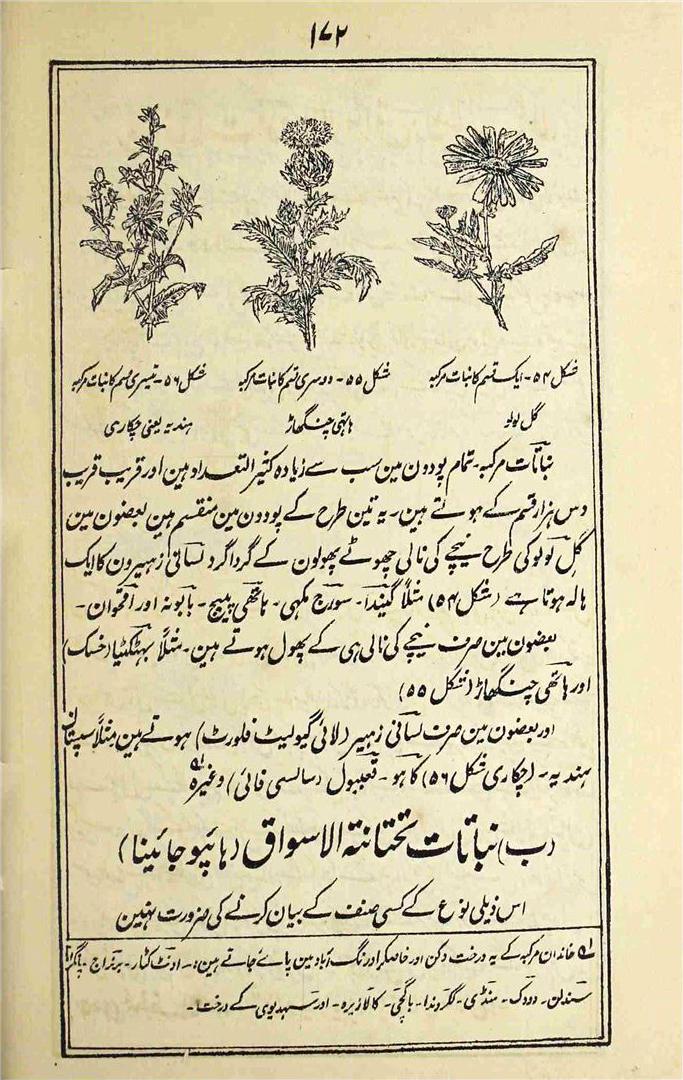 ۱۷۲
شکل ۵۴۔ ایک قسم کا نبات مرکبہ
گل لولو
شکل ۵۵۔ دوسری قسم کا نبات مرکبہ
ہاتھی چنگھاڑ
شکل ۵۶۔ تیسری قسم کا نبات مرکبہ
ہندبہ یعنی چکاری
نباتات مرکبہ۔ تمام پودون مین سب سے زیادہ کثیر التعداد ہین اور قریب قریب
دس ہزار قسم کے ہوتے ہین۔ یہ تین طرح کے پودون مین منقسم ہین بعضون مین
گل لولو کی طرح نیچے کی نالی چھوٹے پھولون کے گرداگرد لسانی زہیرون کا ایک
ہالہ ہوتا ہے (شکل ۵۴) مثلاً گیندا۔ سورج مکہی۔ ہاتھی پیچ۔ بابونہ اور اقحوان۔
بعضون مین صرف نیچے کی نالی ہی کے پھول ہوتے ہین۔ مثلاً بہٹکٹیا (خسک)
اور ہاتھی چنگھاڑ (شکل ۵۵)
اور بعضون مین صرف لسانی زہیر (لائی گیولیٹ فلورٹ) ہوتے ہین مثلاً سپستان
ہندبہ۔ (چکاری شکل ۵۶) کاہو۔ قعیبول (سالسی فائی) وغیرہ لہ
(ب) نباتات تحتانتہ الاسواق (ہائپو جائینا)
اس ذیلی نوع کے کسی صنف کے بیان کرنے کی ضرورت نہین
لہ خاندان مرکبہ کے یہ درخت دکن اور خاصکر اورنگ آباد مین پائے جاتے ہین:۔ اونٹ کٹار۔ برنراج۔
سندلن۔ دودک۔ منڈی۔ لکروندا۔ باگچی۔ کالازیرہ۔ اور سہدیوی کے درخت۔